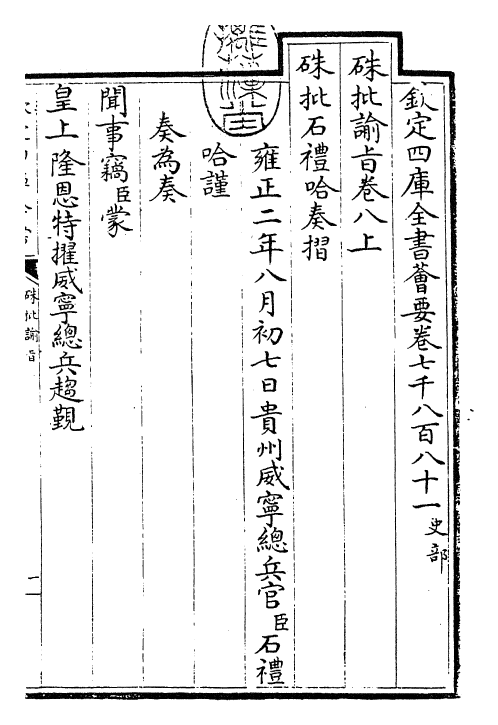 欽定四庫全書薈要卷七千八百八十一史部
硃批諭旨卷八上
硃批石禮哈奏摺
雍正二年八月初七日貴州威寧總兵官臣石禮
哈謹
奏為奏
聞事竊臣蒙
皇上隆恩特擢威寧總兵趨覲
硃批諭旨
一